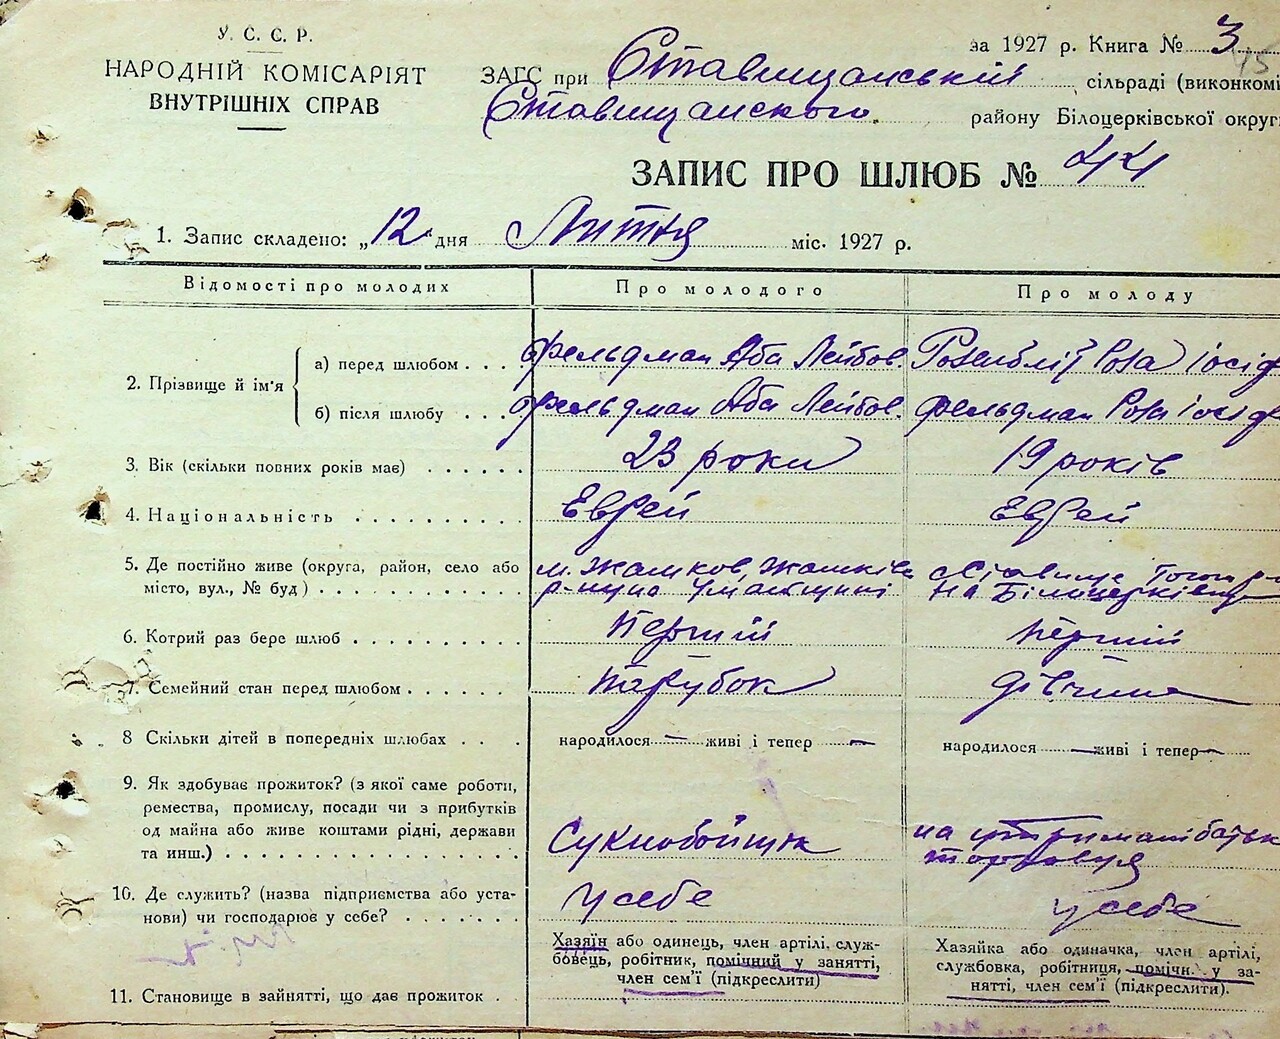 У. С. С. Р.
НАРОДНІЙ КОМІСАРІЯТ
ВНУТРІШНІХ СПРАВ
за 1927 р. Книга № 3
ЗАГС при Ставищанській сільраді (виконком
Ставищанского району Білоцерківської округ
ЗАПИС ПРО ШЛЮБ № 44
1. Запис складено: „12 дня Лютня міс. 1927 р.
Відомості про молодих Про молодого Про молоду
2. Прізвище й ім'я
а) перед шлюбом . . . Фельдман Аба Лейбов. Роза Іосіф
б) після шлюбу . . . Фельдман Аба Лейбов. Фельдман Роза Іосіф
3. Вік (скільки повних років має) . . . . . . 23 роки 19 років
4. Національність . . . . . . . . . . Еврей Еврей
5. Де постійно живе (округа, район, село або
місто, вул., № буд) . . . . . . . . . . .
м. Жашков, Жашків
р-ну на Уманщині
Ставище
на Білоцерківщ
6. Котрий раз бере шлюб . . . . . . . . . Перший перший
7. Семейний стан перед шлюбом . . . . . . Парубок дівчина
8 Скільки дітей в попередніх шлюбах . . . народилося — живі і тепер — народилося — живі і тепер —
9. Як здобуває прожиток? (з якої саме роботи,
ремества, промислу, посади чи з прибутків
од майна або живе коштами рідні, держави
та инш.) . . . . . . . . . . . . . . . .
Сукнобойщик
на утримані батьк
торговця
10. Де служить? (назва підприємства або уста-
нови) чи господарює у себе? . . . . . .
у себе
у себе
11. Становище в зайнятті, що дає прожиток .
Хазяїн або одинець, член артілі, служ-
бовець, робітник, помічний у занятті,
член сем'ї (підкреслити)
Хазяйка або одиначка, член артілі,
службовка, робітниця, помічн. у за-
нятті, член сем'ї (підкреслити).